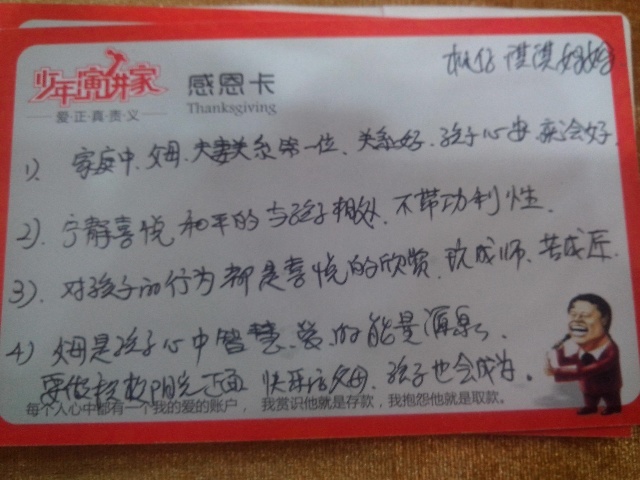 少年演讲家
爱·正·真·责·义
感恩卡
Thanksgiving
相信 淇淇妈妈
1). 家庭中、父母、夫妻关系第一位、关系好、孩子心安 就会好.
2). 宁静喜悦 和平的与孩子相处、不带功利性.
3). 对孩子的行为都是喜悦的欣赏、玩成师、苦成匠.
4) 父母是孩子心中智慧、爱的能量源泉、
要做 阳光 面 快乐 父母、孩子也会成为。
每个人心中都有一个我的爱的账户， 我赏识他就是存款，我抱怨他就是取款。